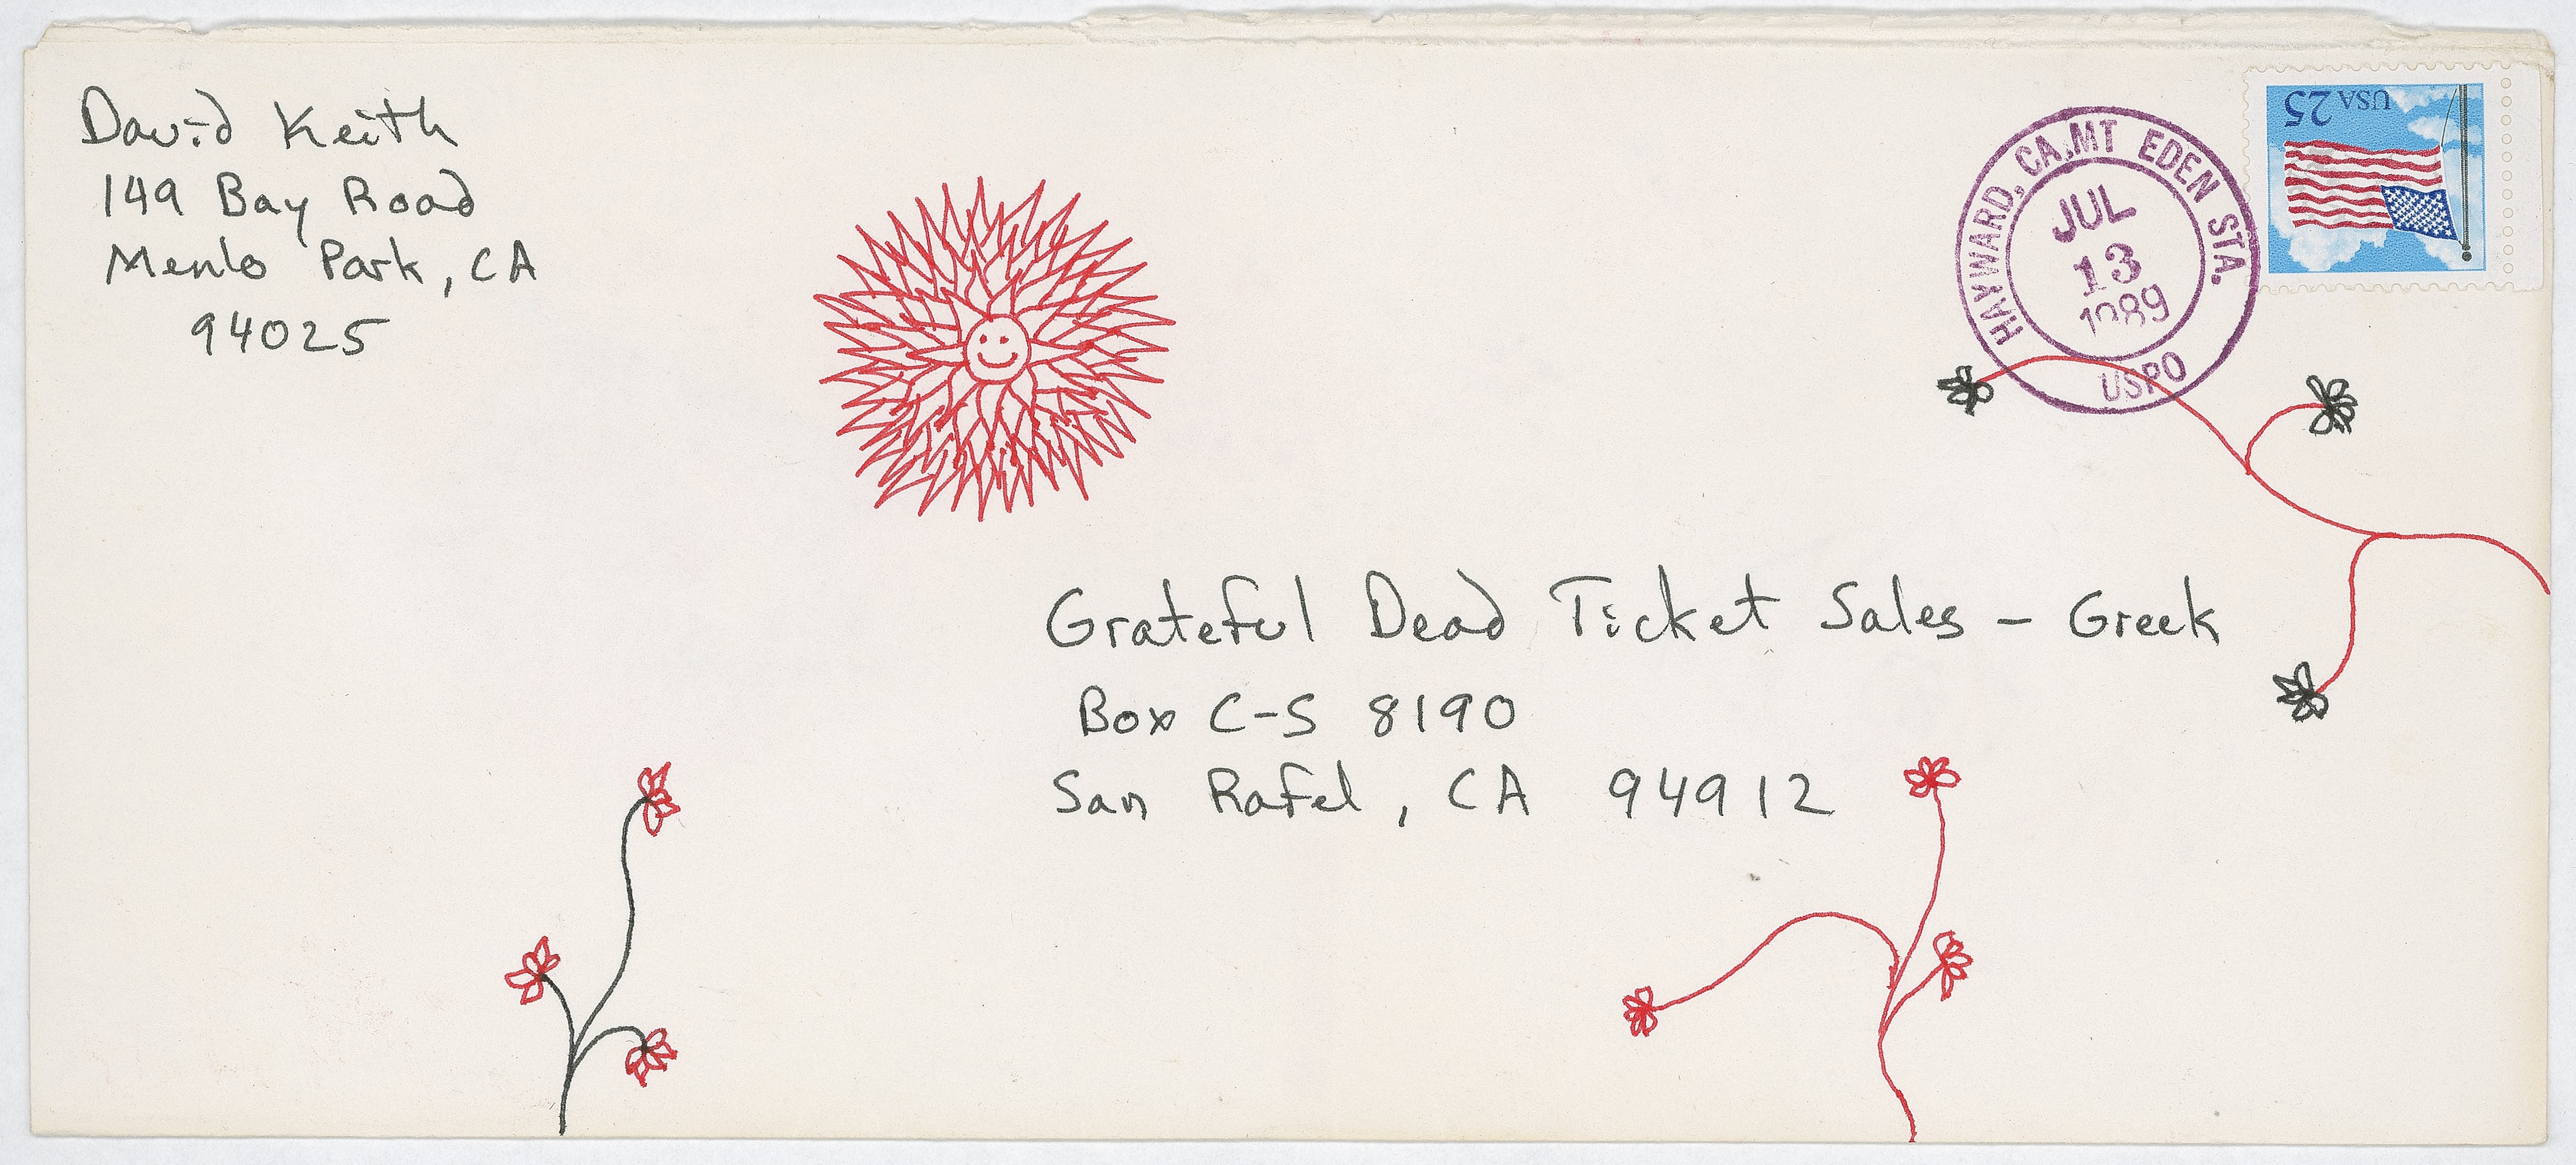 David Keith
149 Bay Road
Menlo Park, CA
94025
USA 25
HAYWARD, CA. MT EDEN STA.
JUL
13
1989
USPO
Grateful Dead Ticket Sales – Greek
Box C-S 8190
San Rafel, CA 94912